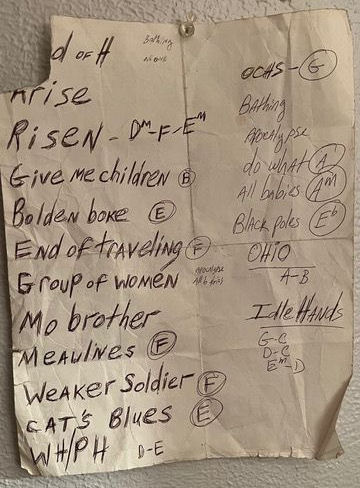 d of H
Bathing
Arise
Risen - Dm-F-Em
Give me children B
Bolden boke E
End of traveling F
Group of women
apocalypse
All babies
Mo brother
Meaulnes F
Weaker Soldier F
CAT'S Blues E
WH/PH D-E
OCHS - G
Bathing
Apocalypse
do what A
All babies Am
Black poles Eb
OHIO
A-B
Idle Hands
G-C
D-C
Em-D